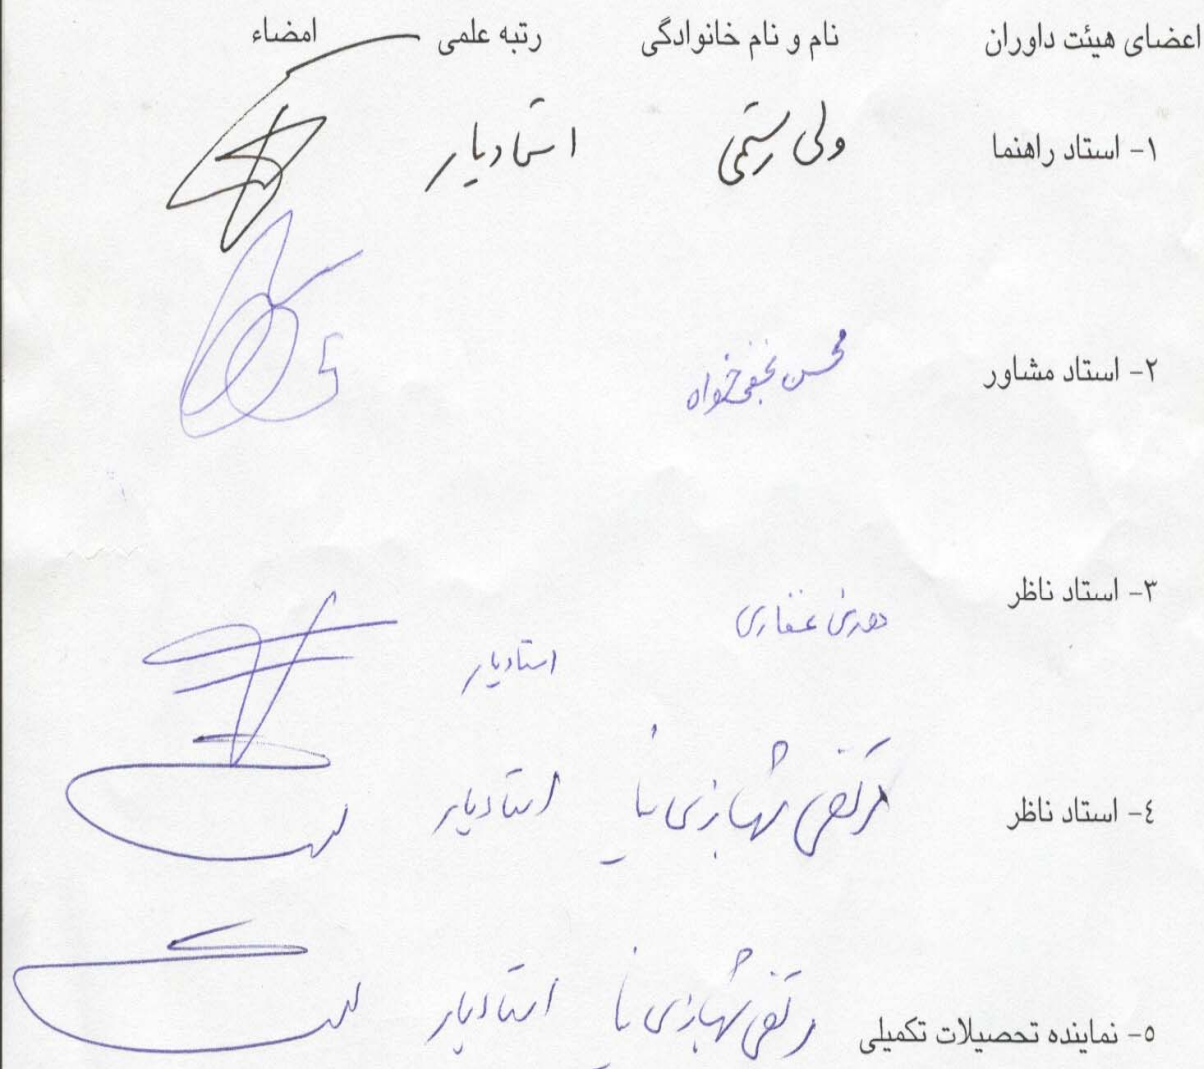 اعضای هیئت داوران نام و نام خانوادگی رتبه علمی امضاء
۱- استاد راهنما ولی رستمی استادیار
۲- استاد مشاور محسن نجفی‌خواه
۳- استاد ناظر مهدی غفاری استادیار
٤- استاد ناظر مرتضی شهبازی نیا استادیار
٥- نماینده تحصیلات تکمیلی مرتضی شهبازی نیا استادیار